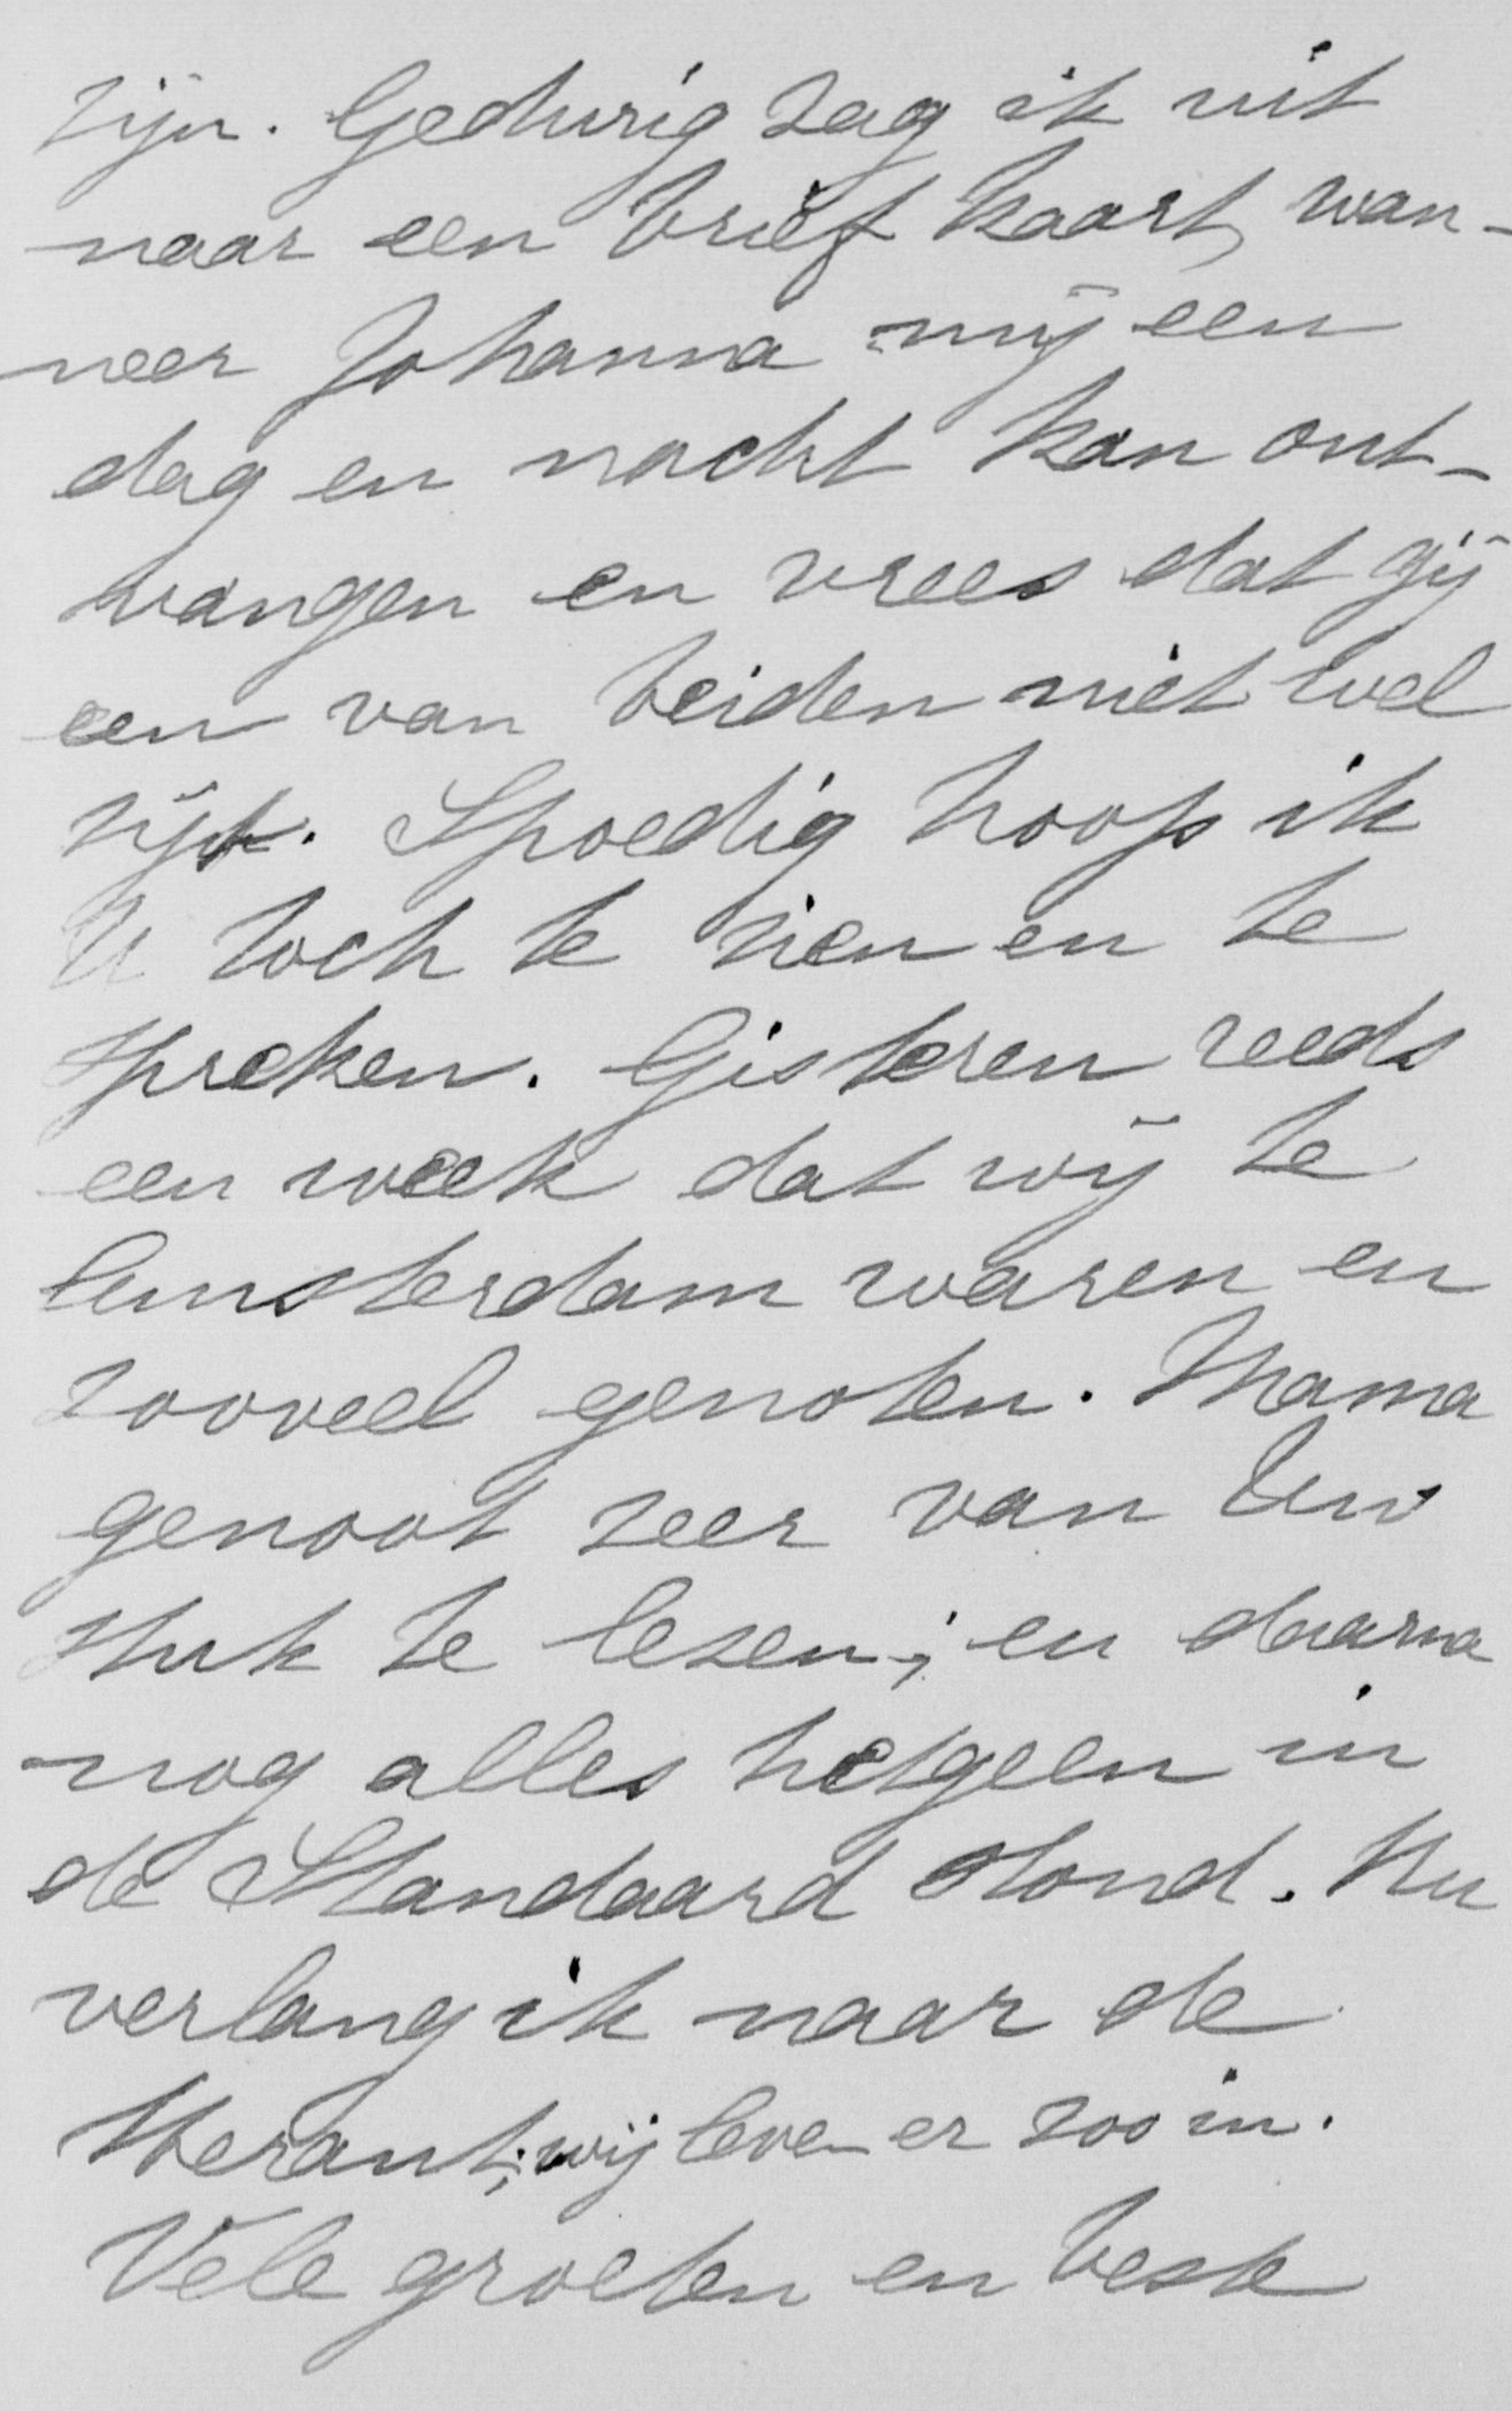 zijn. Gedurig zag ik uit
naar een briefkaart, wan-
neer Johanna mij een
dag en nacht kan ont-
vangen en vrees dat gij
een van beiden niet wel
zijt. Spoedig hoop ik
U toch te zien en te
spreken. Gisteren reeds
een week dat wij te
Amsterdam waren en
zooveel genoten. Mama
genoot zeer van Uw
stuk te lezen; en daarna
nog alles hetgeen in
de Standaard stond. Nu
verlang ik naar de
Heraut; wij leven er zoo in.
Vele groeten en beste